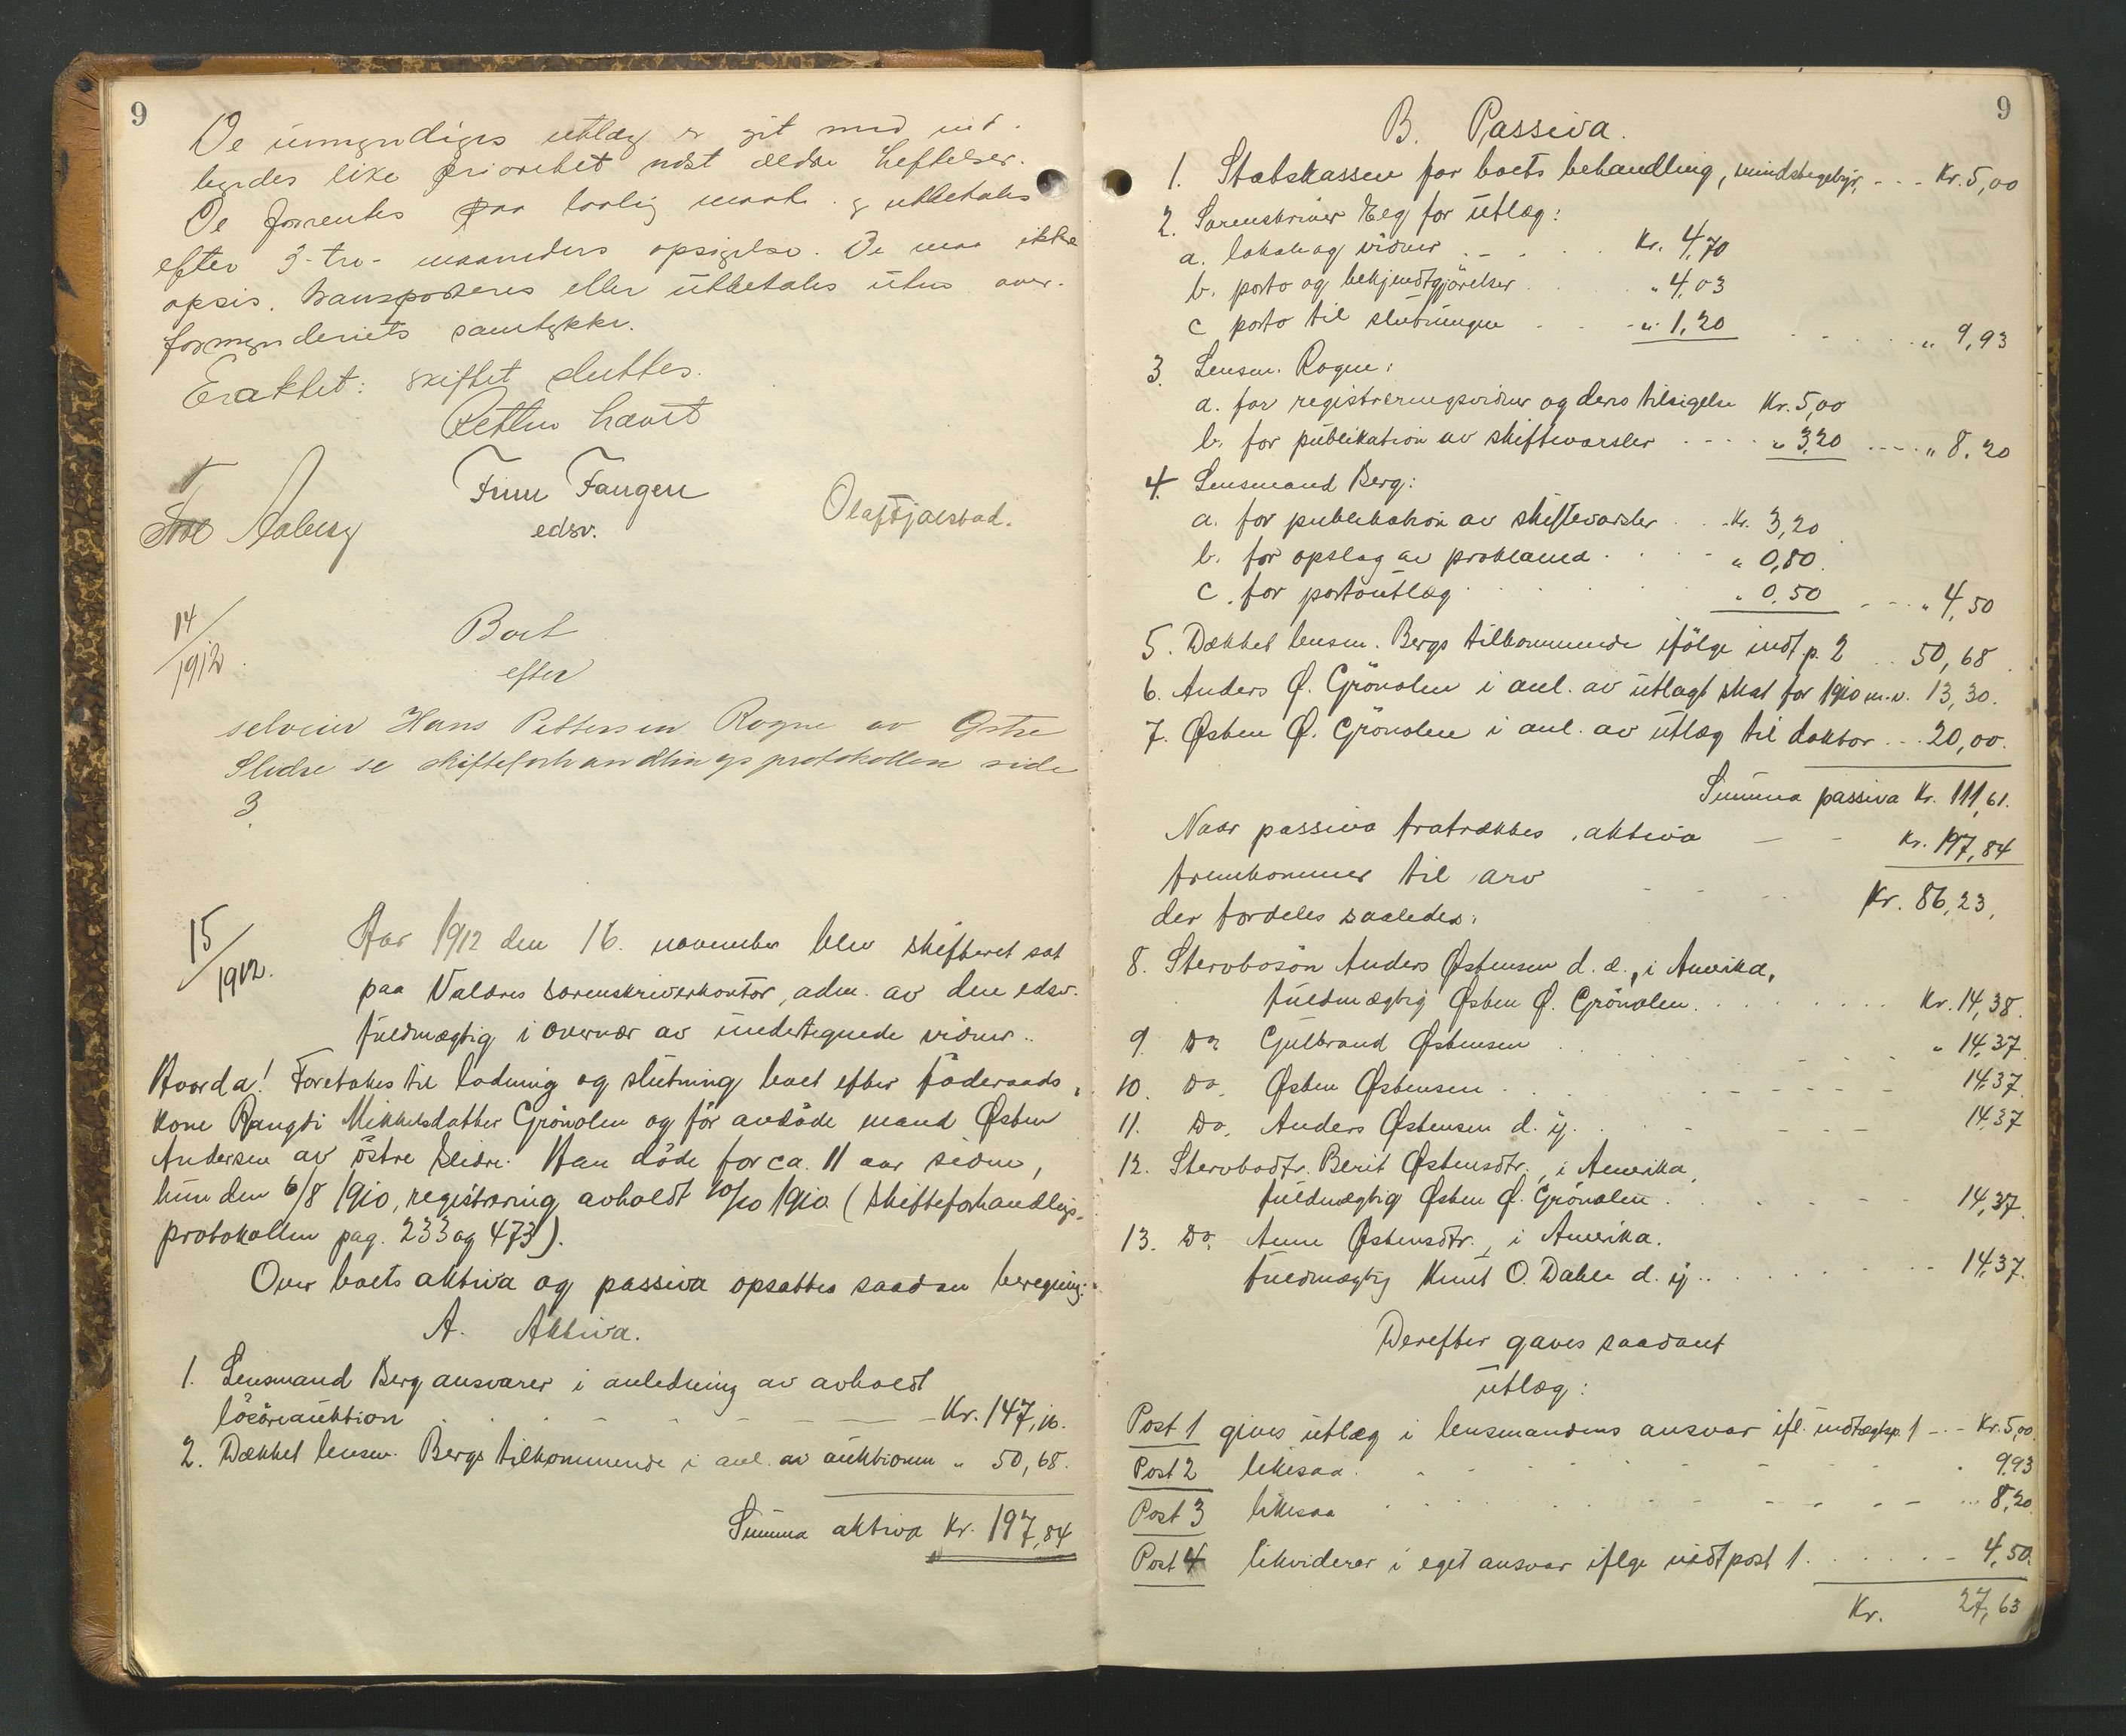 9
De umyndiges utlæg er git med ind-
byrdes like prioritet næst ældre heftelser.
De forrentes paa lovlig maate og utbetales
efter 3-tre- maaneders opsigelse. De maa ikke
opsis. transporteres eller utbetales uten over-
formynderiets samtykke.
Eraktet: skiftet sluttes.
Retten hævet
Finn Fangen
edsv.
Aaberg
14/1912.
Boet
efter
selveier Hans Pettersen Rogne av Østre
Slidre se skifteforhandlingsprotokollen side
3.
15/1912.
Aar 1912 den 16. november blev skifteret sat
paa Valdres sorenskriverkontor, adm. av den edsv.
fuldmægtig i overvær av undertegnede vidner..
Hvorda! Foretokes til lodning og slutning boet efter föderaads-
kone Rangdi Mikkelsdatter Grönolen og för avdöde mand Østen
Andersen av östre Slidre. Han döde for ca. 11 aar siden,
hun den 6/8 1910, registrering avholdt 10/10 1910 (skifteforhandligs-
protokollen pag. 233 og 473).
Over boets aktiva og passiva opsattes saadan beregning:
A. Aktiva.
1. Lensmand Berg ansvarer i anledning av avholdt
lösöreauktion - - - - Kr. 147,16.
2. Dækket lensm. Bergs tilkommende i anl. av auktionen " 50,68.
Summa aktiva Kr. 197,84
9
B. Passiva.
1. Statskassen for boets behandling, mindstegebyr, - - - Kr. 5,00
2. Sorenskriver Elg for utlæg:
a. lokale og vidner - - - Kr. 4,70
b. porto og bekjendtgjörelser " 4,03
c porto til slutningen - - - " 1,20 - - - " 9,93
3. Lensm. Rogne:
a. for registreringsvidner og deres tilsigelse Kr. 5,00
b. for publikation av skiftevarsler - - - - " 3,20 - - - " 8,20
4. Lensmand Berg:
a. for publikation av skiftevarsler - - Kr. 3,20
b. for opslag av proklama - - - " 0,80.
c. for portoutlæg " 0,50 - - - " 4,50
5. Dækket lensm. Bergs tilkommende ifölge indt. p. 2 . . 50,68.
6. Anders Ø. Grönolen i anl. av utlagt skat for 1910 m.v. 13,30.
7. Østen Ø. Grönolen i anl. av utlæg til doktor . . . 20,00.
Summa passiva Kr. 111,61.
Naar passiva fratrækkes aktiva - - Kr. 197,84
fremkommer til arv - - - Kr. 86,23,
der fordeles saaledes:
8. Stervbosön Anders Østensen d. æ., i Amerika,
fuldmægtig Østen Ø. Grönolen. . . . . . . Kr. 14,38.
9. Do Gulbrand Østensen . . . . . . " 14,37.
10. Do. Østen Østensen . . . - - - - - 14,37.
11. Do. Anders Østensen d. y. . . - - - - 14,37
12. Stervbodtr. Berit Østensdtr., i Amerika,
fuldmægtig Østen Ø. Grönolen . . . - - 14,37.
13. Do. Anne Østensdtr., i Amerika.
fuldmægtig Knut O. Dahle d. y. . . . . . - - 14,37.
Derefter gaves saadant
utlæg:
Post 1 gives utlæg i lensmandens ansvar ifl. indtægtsp. 1 - - - Kr. 5,00.
Post 2 likesaa . . . - - - - - - 9,93
Post 3 likesaa . . . - - - - - - 8,20.
Post 4 likviderer i eget ansvar iflge indt post 1. . . . - - 4,50.
Kr. 27,63